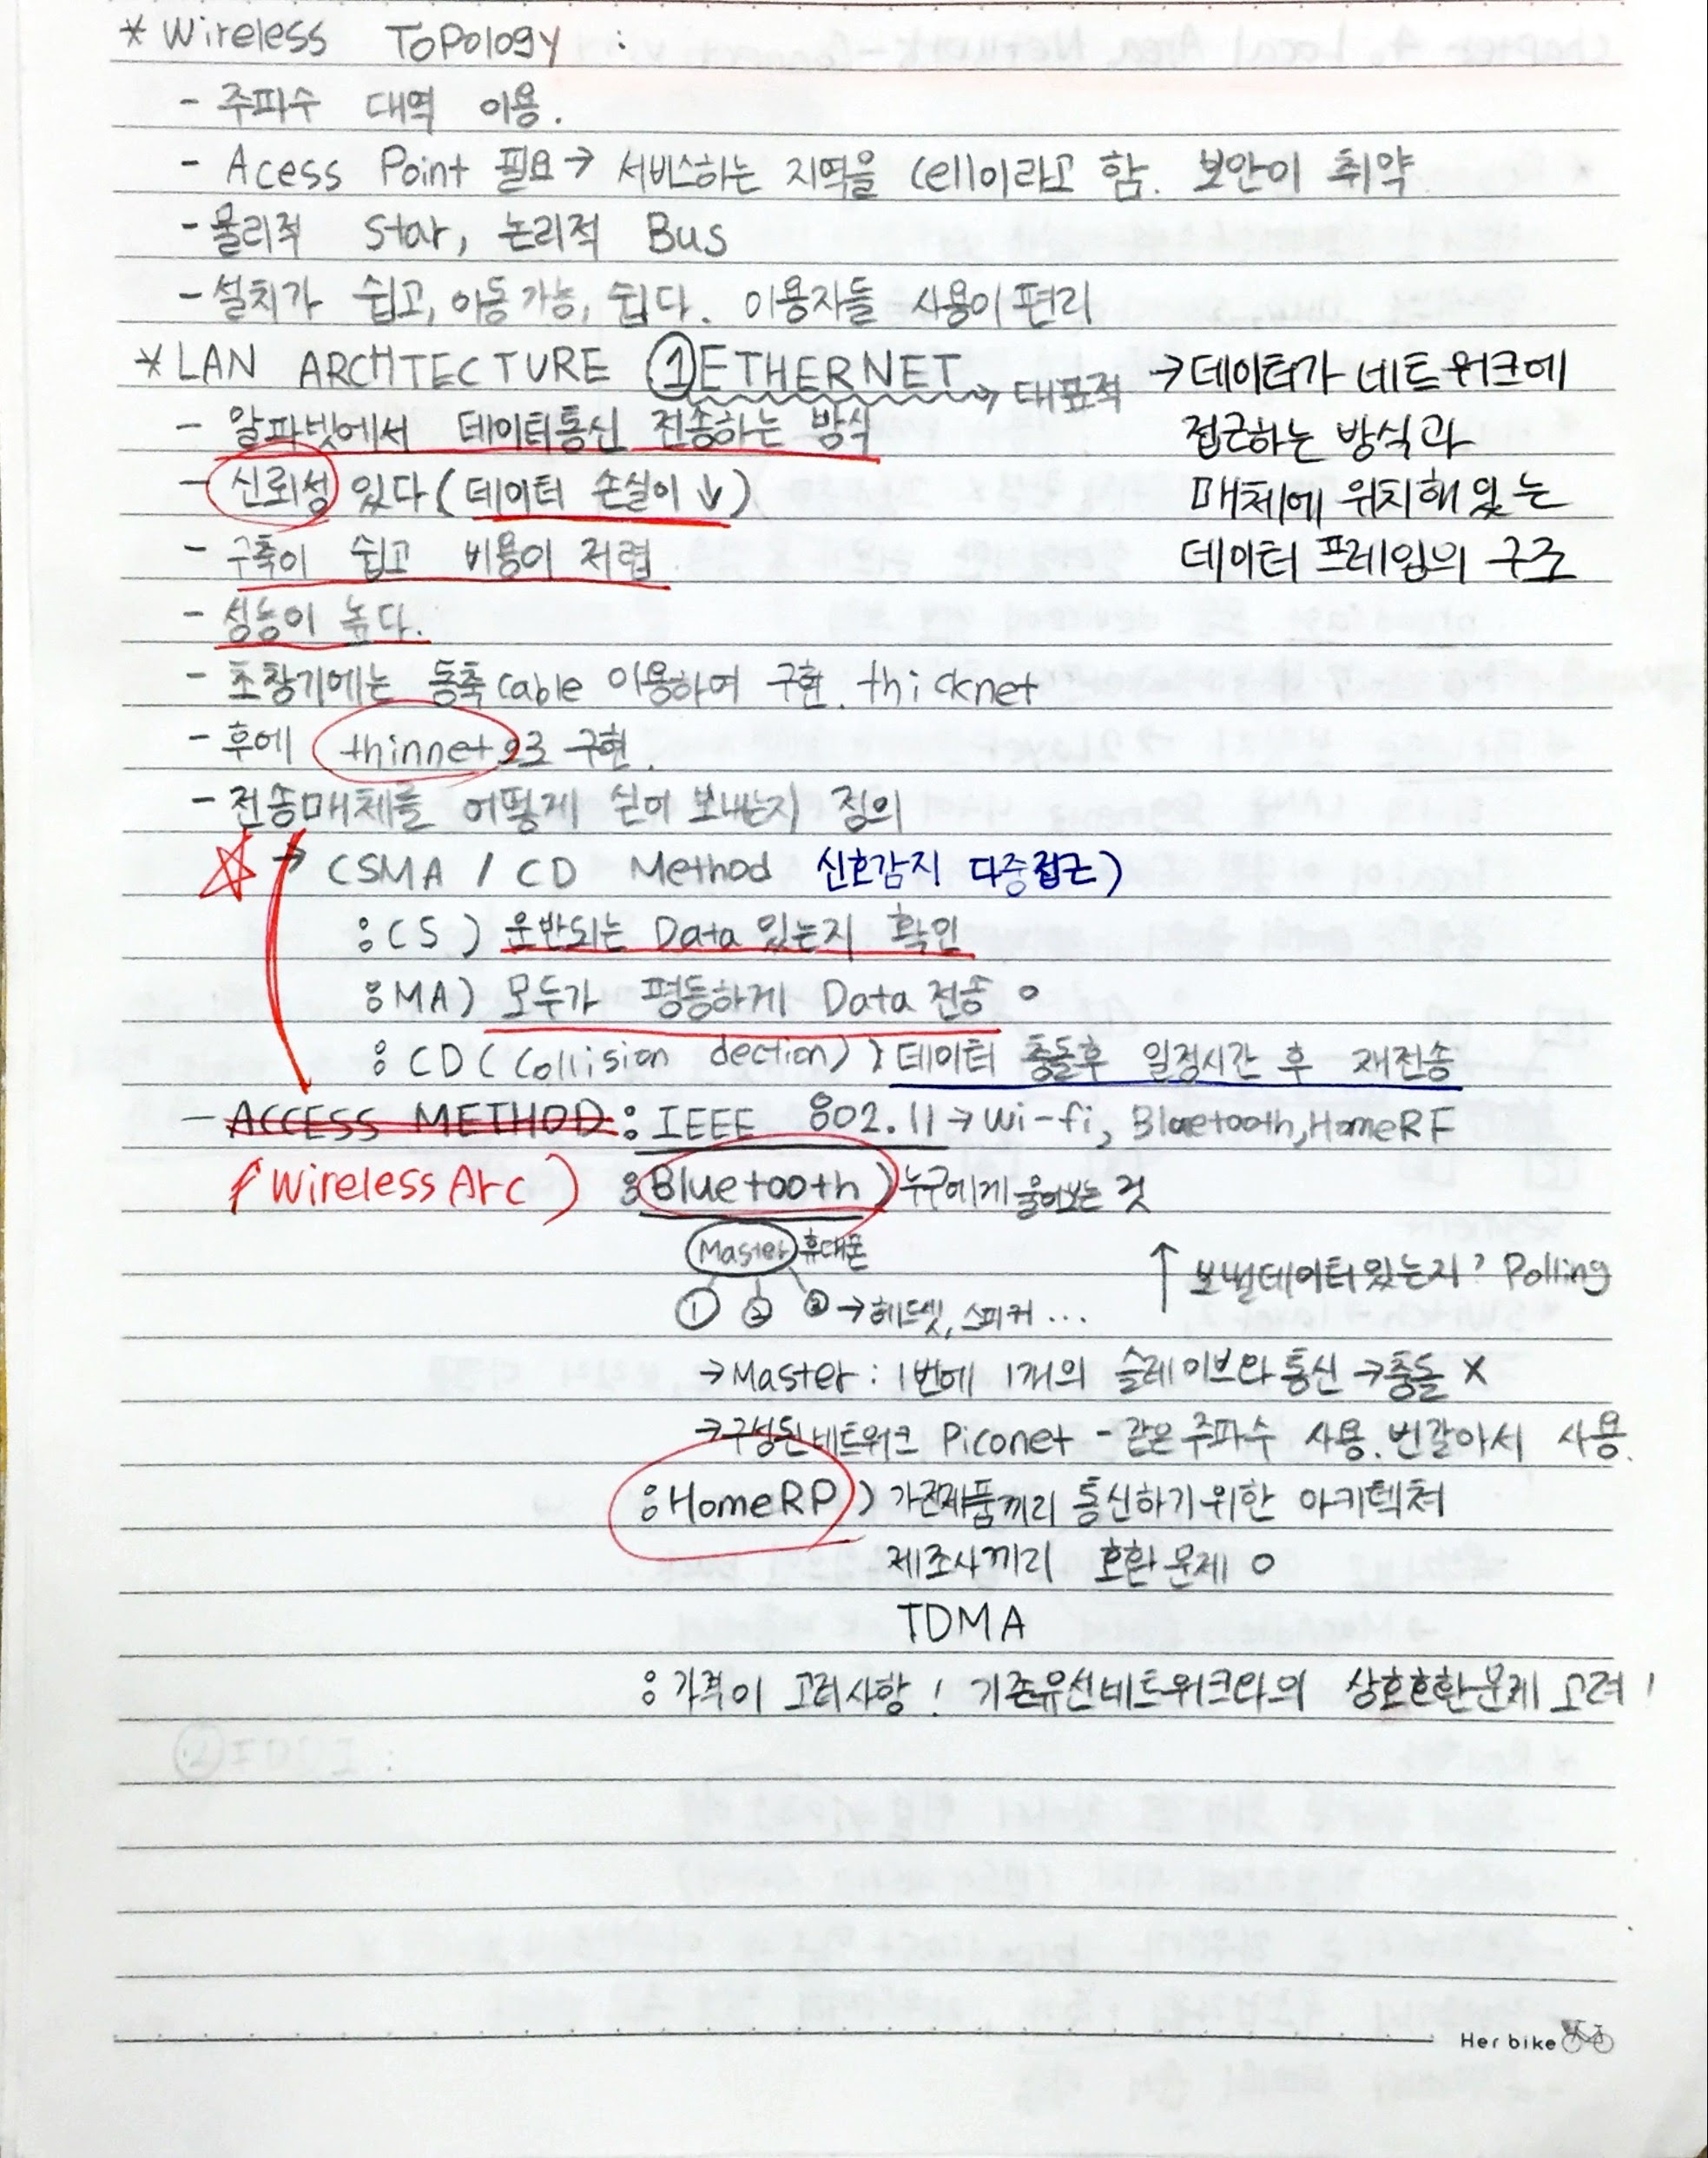 * Wireless Topology :
- 주파수 대역 이용.
- Acess Point 필요 → 서비스하는 지역을 Cell이라고 함. 보안이 취약
- 물리적 Star, 논리적 Bus
- 설치가 쉽고, 이동가능, 쉽다. 이용자들 사용이 편리
* LAN ARCHTECTURE ① ETHERNET → 대표적
→ 데이터가 네트워크에
접근하는 방식과
매체에 위치해 있는
데이터 프레임의 구조
- 알파벳에서 데이터통신 전송하는 방식
- 신뢰성 있다 (데이터 손실이 ↓)
- 구축이 쉽고 비용이 저렴
- 성능이 높다.
- 초창기에는 동축cable 이용하여 구현. thicknet
- 후에 thinnet으로 구현.
- 전송매체를 어떻게 실어 보내는지 정의
→ CSMA / CD Method 신호감지 다중접근)
: CS ) 운반되는 Data 있는지 확인
: MA) 모두가 평등하게 Data 전송 o
: CD ( Collision dection) ) 데이터 충돌후 일정시간 후 재전송
- ACCESS METHOD : IEEE 802.11 → Wi-fi, Bluetooth, HomeRF
(Wireless Arc) : Bluetooth ) 누구에게 물어보는 것
Master 휴대폰
↑ 보낼데이터있는지? Polling
① ② ③ → 헤드셋, 스피커 ...
→ Master : 1번에 1개의 슬레이브와 통신 → 충돌 X
→ 구성된 네트워크 Piconet - 같은 주파수 사용. 번갈아서 사용.
: HomeRP ) 가전제품끼리 통신하기위한 아키텍처
제조사끼리 호환문제 o
TDMA
: 가격이 고려사항! 기존유선네트워크와의 상호호환문제 고려!
Her bike